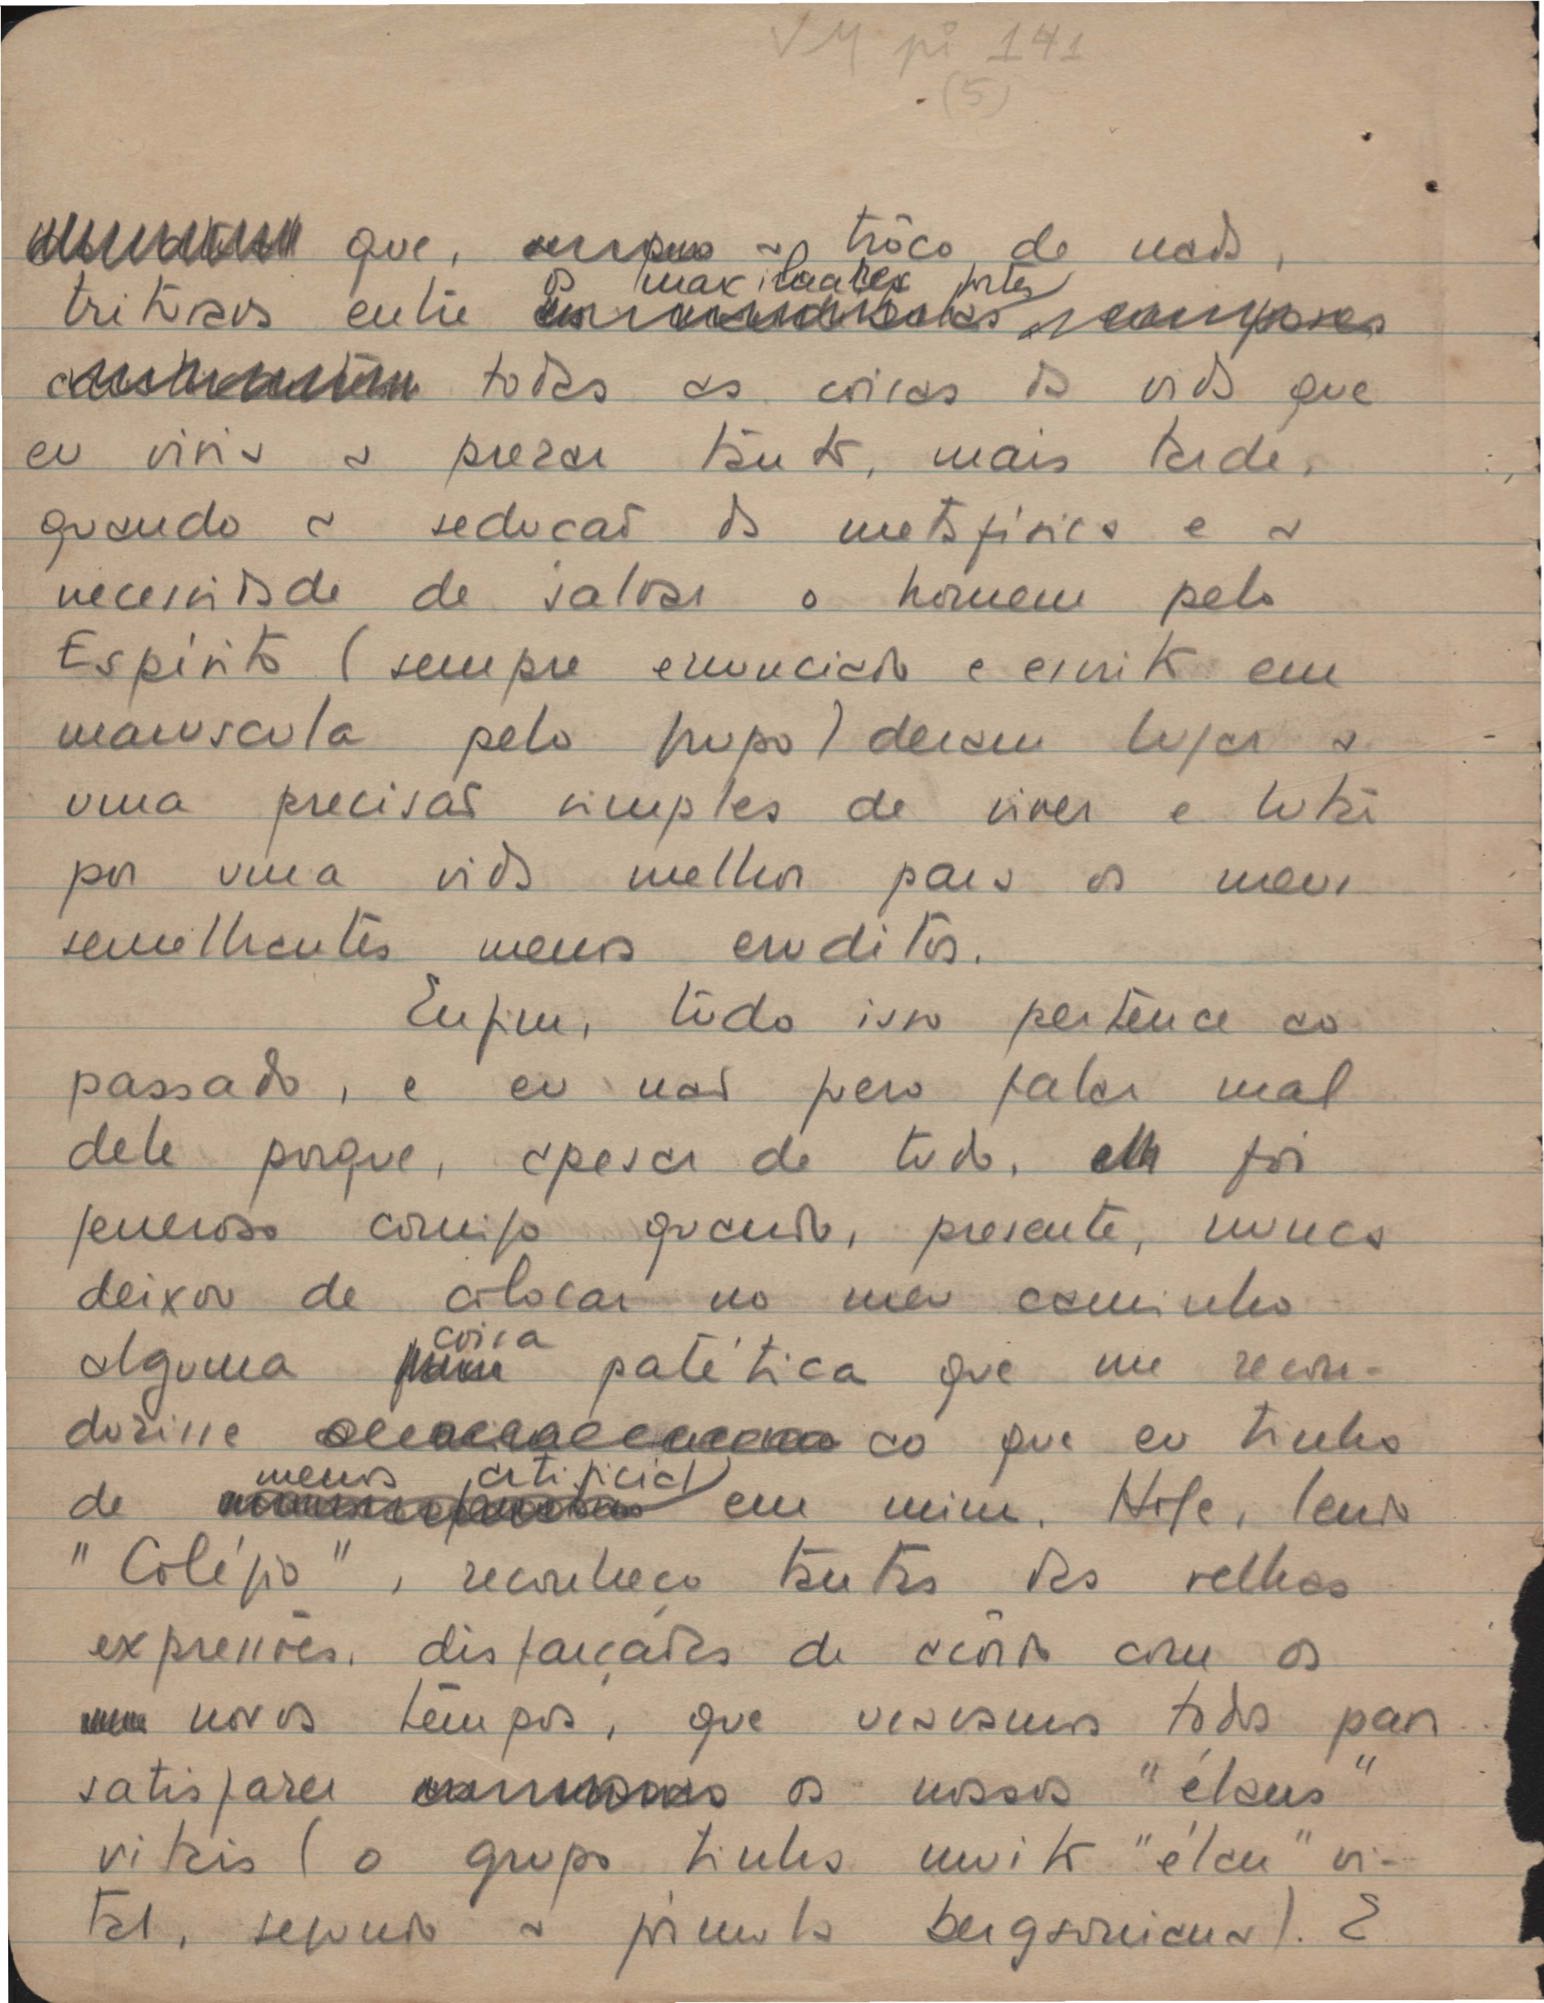 VM pi 141
(5)
que, a trôco de nada,
triturava entre os maxilares fortes
todas as coisas da vida que
eu viria a prezar tanto, mais tarde,
quando a sedução da metafísica e a
necessidade de salvar o homem pelo
Espírito (sempre enunciado e escrito em
maiuscula pelo grupo) deram lugar a
uma precisão simples de viver e lutar
por uma vida melhor para os meus
semelhantes menos eruditos.
Enfim, tudo isso pertence ao
passado, e eu não quero falar mal
dele porque, apesar de tudo, ele foi
generoso comigo quando, presente, nunca
deixou de colocar no meu caminho
alguma coisa patética que me recon-
duzisse ao que eu tinha
de menos artificial em mim. Hoje, lendo
"Colégio", reconheço tantas das velhas
expressões, disfarçadas de acôrdo com os
novos tempos, que usavamos todos para
satisfazer os nossos "élans"
vitais (o grupo tinha muito "élan" vi-
tal, segundo a fórmula bergsoniana). E